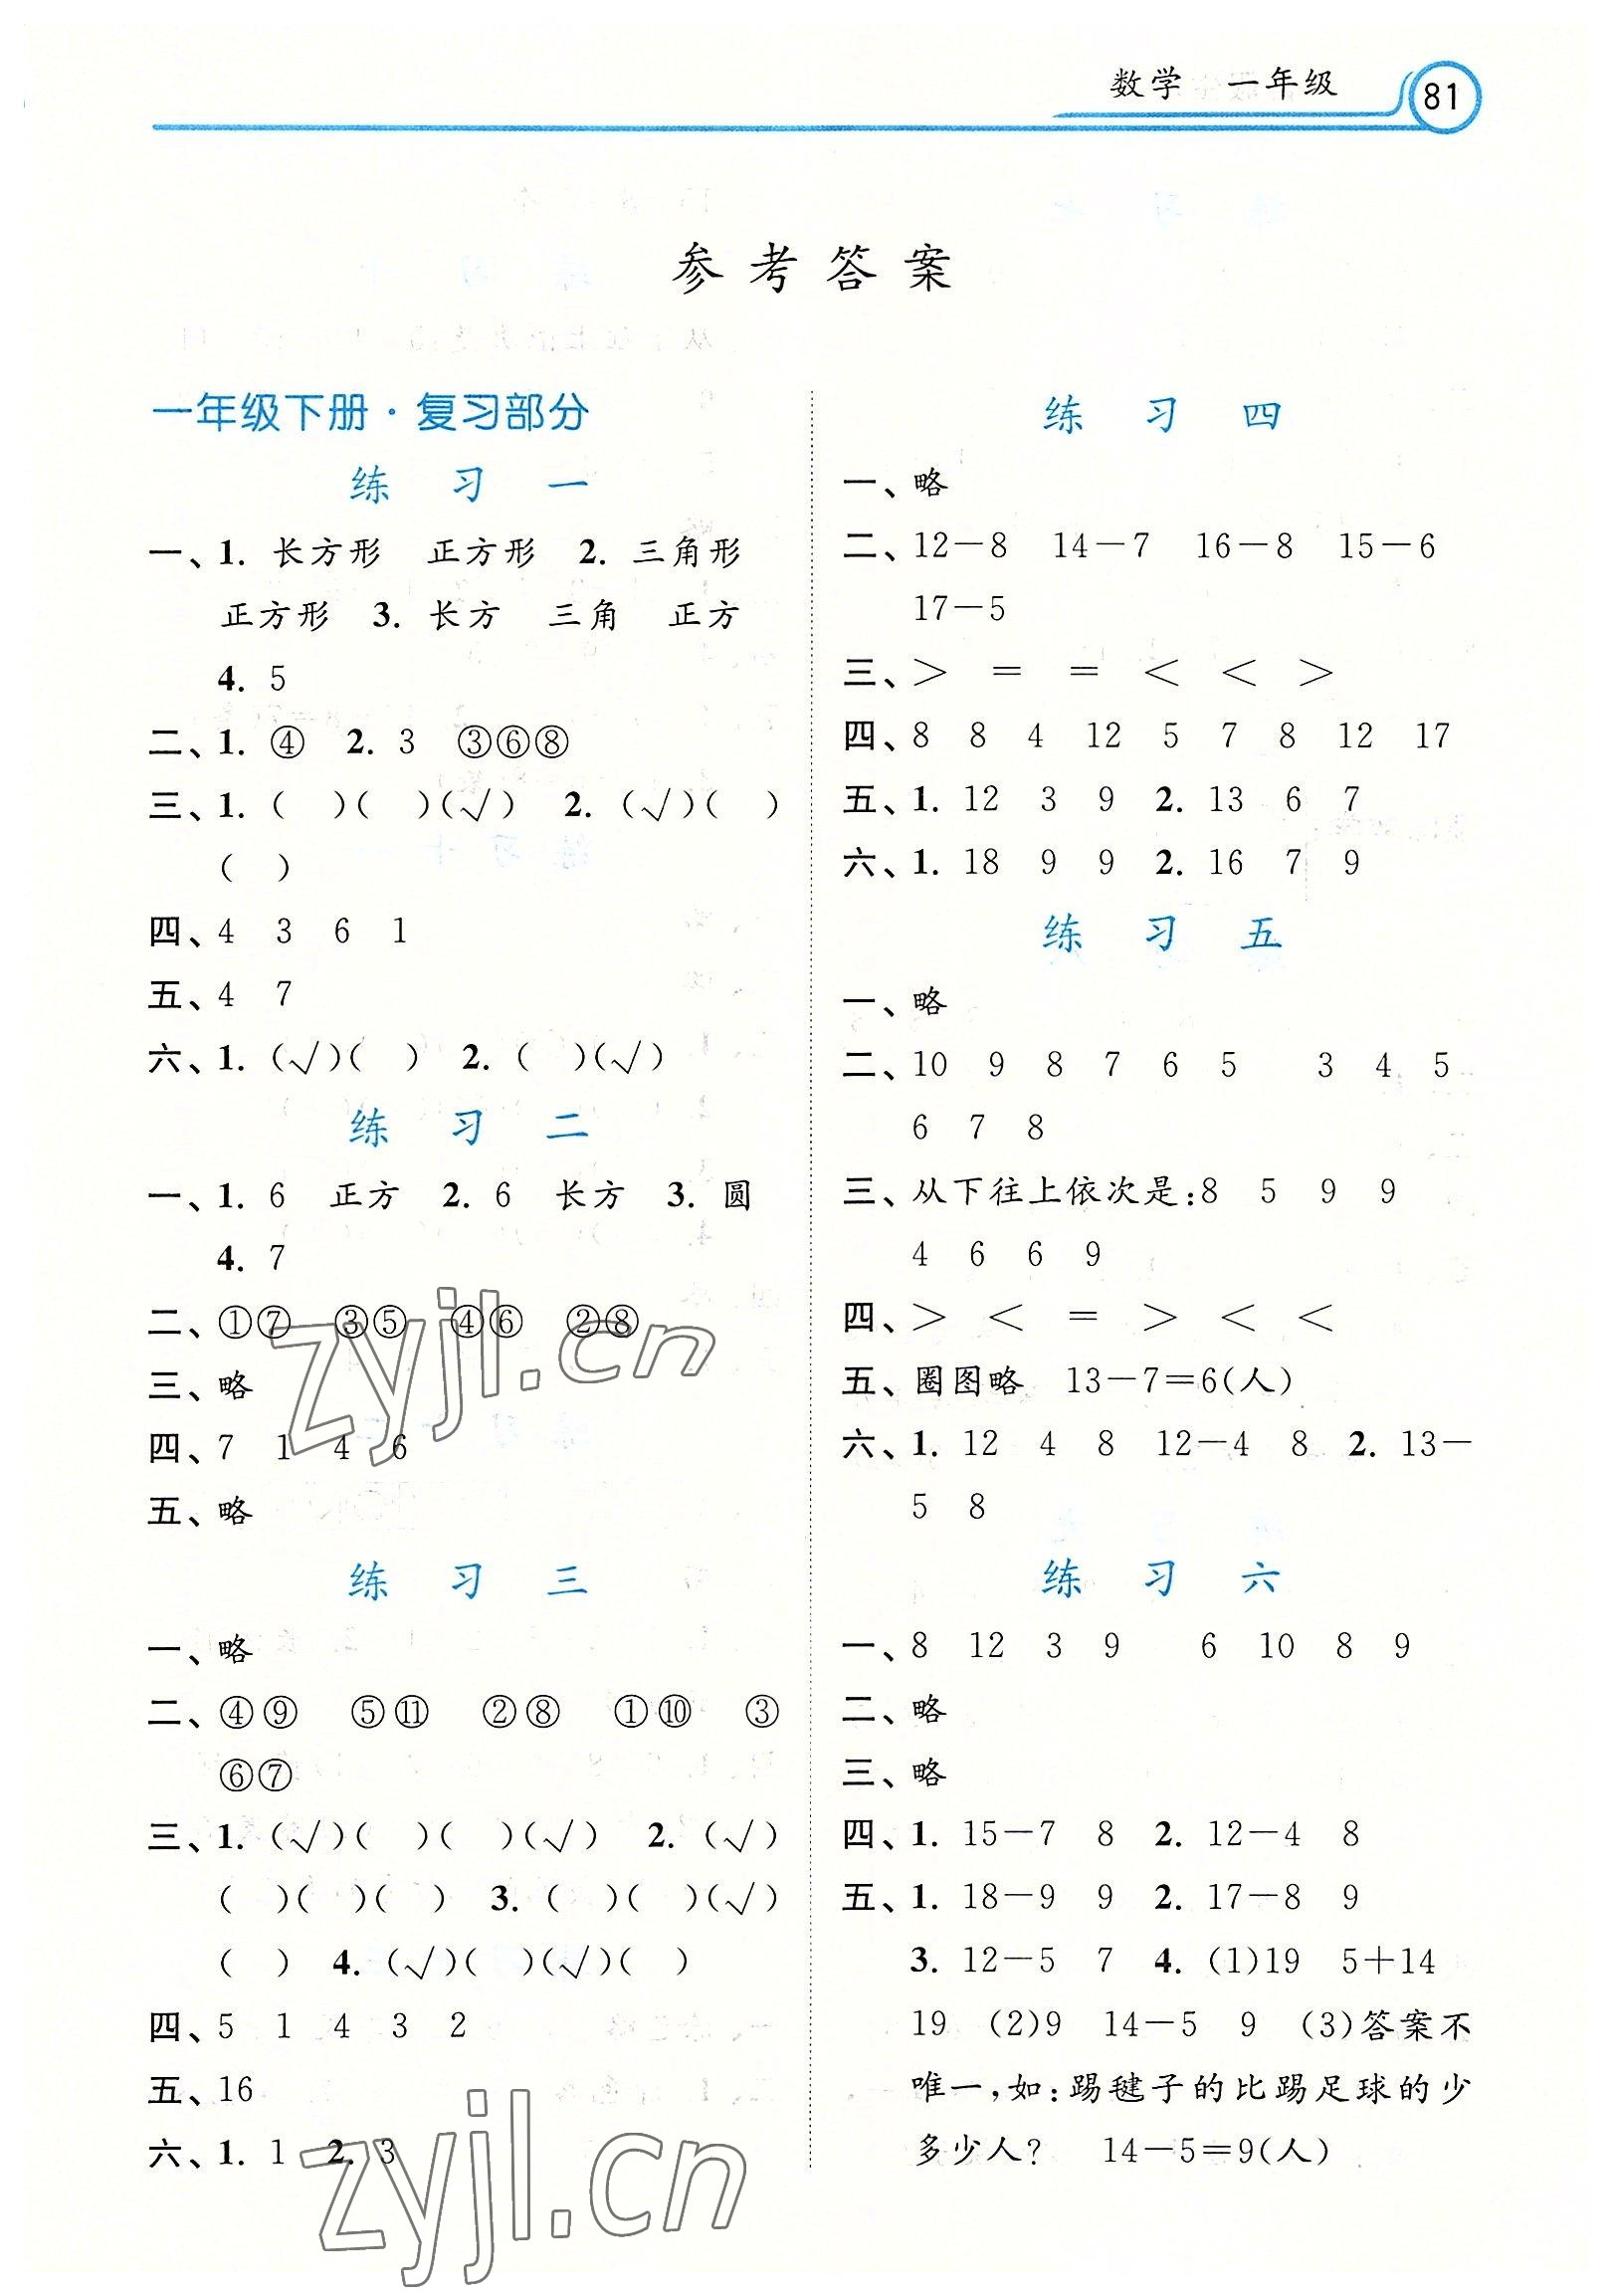 数学 一年级 81
参考答案
一年级下册·复习部分
练 习 一
一、1. 长方形 正方形 2. 三角形
正方形 3. 长方 三角 正方
4. 5
二、1. ④ 2. 3 ③⑥⑧
三、1. ( )( )(√) 2. (√)( )
( )
四、4 3 6 1
五、4 7
六、1. (√)( ) 2. ( )(√)
练 习 二
一、1. 6 正方 2. 6 长方 3. 圆
4. 7
二、①⑦ ③⑤ ④⑥ ②⑧
三、略
四、7 1 4 6
五、略
练 习 三
一、略
二、④⑨ ⑤⑪ ②⑧ ①⑩ ③
⑥⑦
三、1. (√)( )( )(√) 2. (√)
( )( )( ) 3. ( )( )(√)
( ) 4. (√)( )(√)( )
四、5 1 4 3 2
五、16
六、1. 1 2. 3
练 习 四
一、略
二、12－8 14－7 16－8 15－6
17－5
三、＞ ＝ ＝ ＜ ＜ ＞
四、8 8 4 12 5 7 8 12 17
五、1. 12 3 9 2. 13 6 7
六、1. 18 9 9 2. 16 7 9
练 习 五
一、略
二、10 9 8 7 6 5 3 4 5
6 7 8
三、从下往上依次是:8 5 9 9
4 6 6 9
四、＞ ＜ ＝ ＞ ＜ ＜
五、圈图略 13－7＝6(人)
六、1. 12 4 8 12－4 8 2. 13－
5 8
练 习 六
一、8 12 3 9 6 10 8 9
二、略
三、略
四、1. 15－7 8 2. 12－4 8
五、1. 18－9 9 2. 17－8 9
3. 12－5 7 4. (1)19 5＋14
19 (2)9 14－5 9 (3)答案不
唯一,如:踢毽子的比踢足球的少
多少人? 14－5＝9(人)
zyjl.cn
zyjl.cn